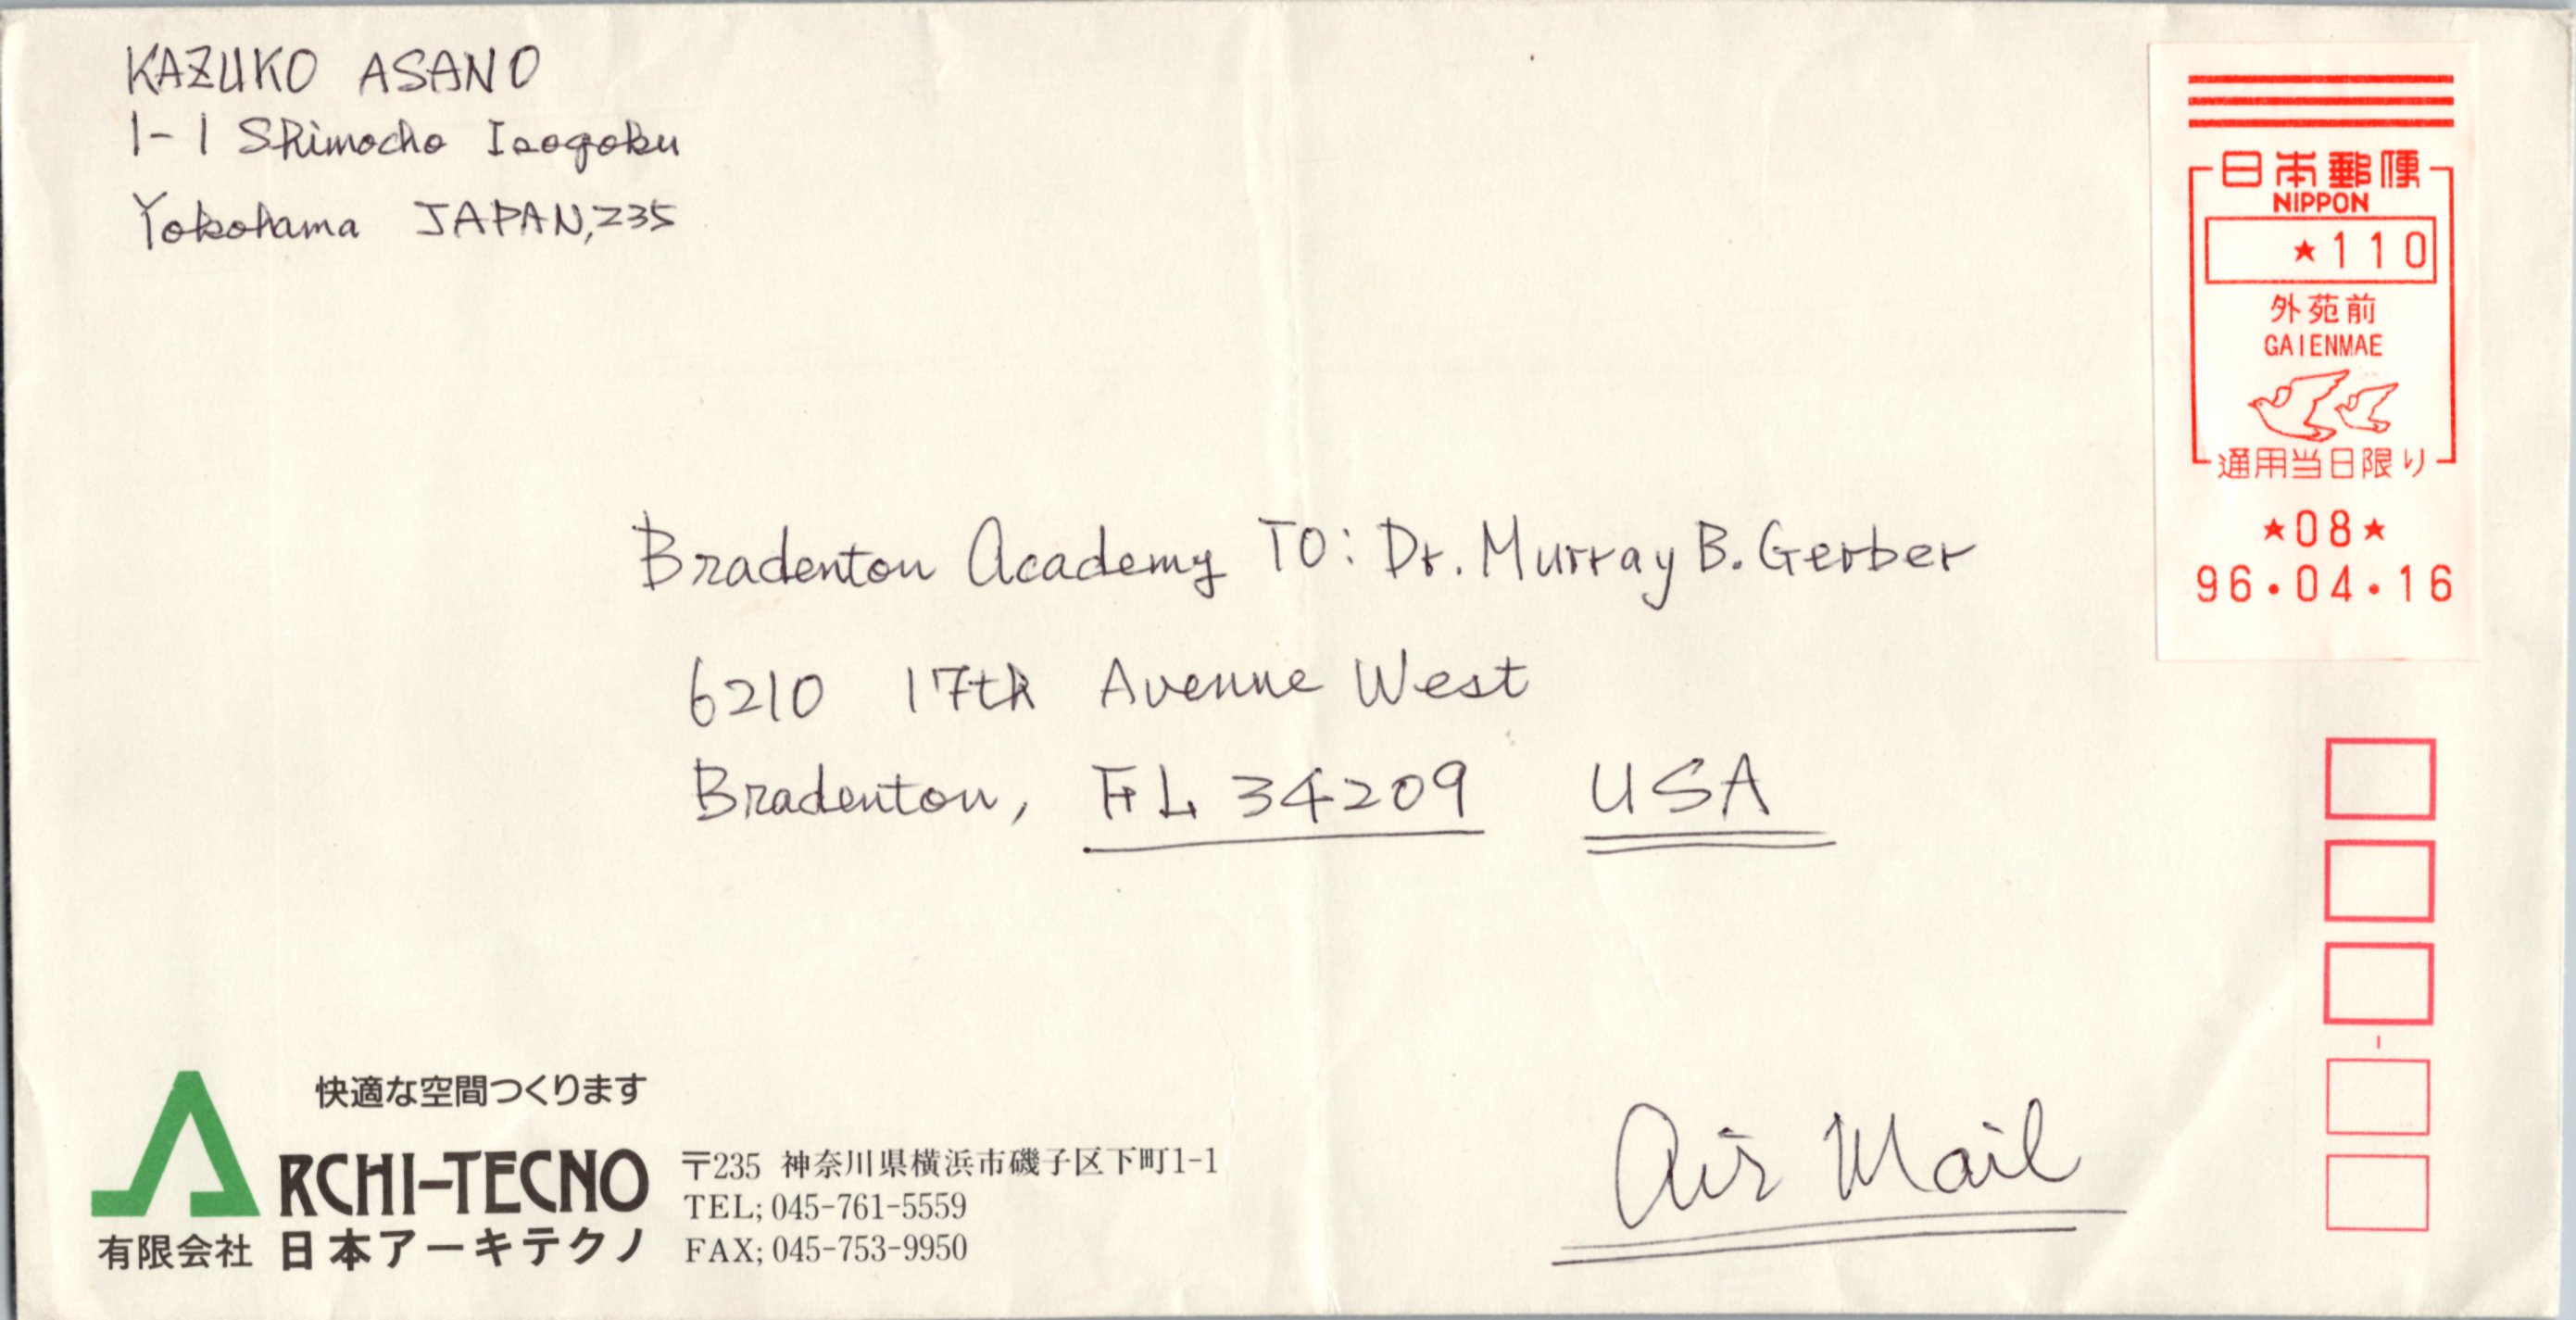 KAZUKO ASANO
1-1 Shimocho Isogoku
Yokohama JAPAN, 235
日本郵便
NIPPON
★110
外苑前
GAIENMAE
通用当日限り
★08★
96・04・16
Bradenton Academy TO: Dr. Murray B. Gerber
6210 17th Avenue West
Bradenton, FL 34209 USA
Air Mail
快適な空間つくります
ARCHI-TECNO
有限会社 日本アーキテクノ
〒235 神奈川県横浜市磯子区下町1-1
TEL; 045-761-5559
FAX; 045-753-9950